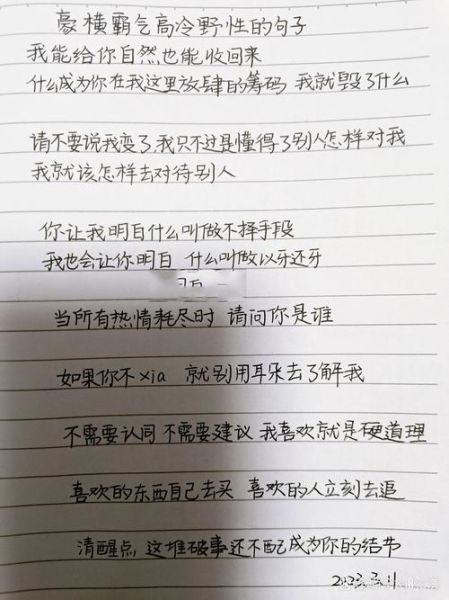 豪横霸气高冷野性的句子
我能给你自然也能收回来
什么成为你在我这里放肆的筹码 我就毁了什么
请不要说我变了 我只不过是懂得了别人怎样对我
我就该怎样去对待别人
你让我明白什么叫做不择手段
我也会让你明白 什么叫做以牙还牙
当所有热情耗尽时 请问你是谁
如果你不xia 就别用耳朵去了解我
不需要认同 不需要建议 我喜欢就是硬道理
喜欢的东西自己去买 喜欢的人立刻去追
清醒点,这堆破事还不配成为你的结节
2023.3.11